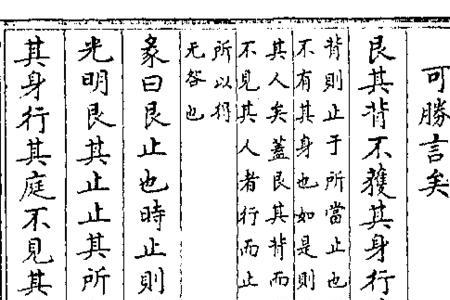 可勝言矣
艮其背不獲其身行
背則止于所當止也
不有其身也如是則
其人矣蓋艮其背而
不見其人者行而止
所以得
无咎也
彖曰艮止也時止則
光明艮其止止其所
其身行其庭不見其